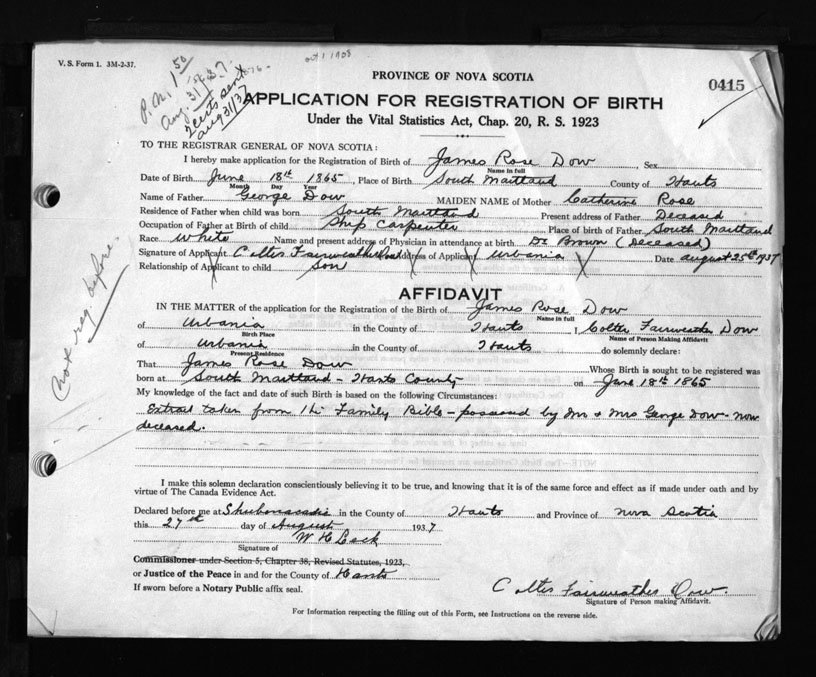 V. S. Form 1. 3M-2-37.
P.N. 1 50
Aug. 31/37
sent
aug 31/37
oct 1 1908
PROVINCE OF NOVA SCOTIA
0415
APPLICATION FOR REGISTRATION OF BIRTH
Under the Vital Statistics Act, Chap. 20, R. S. 1923
TO THE REGISTRAR GENERAL OF NOVA SCOTIA:
I hereby make application for the Registration of Birth of James Rose Dow Sex
Name in full
Date of Birth June 18th 1865, Place of Birth South Maitland County of Hants
Month Day Year
Name of Father George Dow MAIDEN NAME of Mother Catherine Rose
Residence of Father when child was born South Maitland Present address of Father Deceased
Occupation of Father at Birth of child Ship Carpenter Place of birth of Father South Maitland
Race White Name and present address of Physician in attendance at birth Dr Brown (Deceased)
Signature of Applicant Colter Fairweather Dow Address of Applicant Urbania Date August 25th 1937
Relationship of Applicant to child Son
Not reg before.
AFFIDAVIT
IN THE MATTER of the application for the Registration of the Birth of James Rose Dow
Name in full
of Urbania in the County of Hants I, Colter Fairweather Dow
Birth Place Name of Person Making Affidavit
of Urbania in the County of Hants do solemnly declare:
Present Residence
That James Rose Dow Whose Birth is sought to be registered was
born at South Maitland - Hants County on June 18th 1865
My knowledge of the fact and date of such Birth is based on the following Circumstances:
Extract taken from the Family Bible - possessed by Mr & Mrs George Dow - now
deceased.
I make this solemn declaration conscientiously believing it to be true, and knowing that it is of the same force and effect as if made under oath and by
virtue of The Canada Evidence Act.
Declared before me at Shubenacadie in the County of Hants and Province of Nova Scotia
this 27th day of August 1937
W H
Signature of
Commissioner under Section 5, Chapter 38, Revised Statutes, 1923,
or Justice of the Peace in and for the County of Hants
If sworn before a Notary Public affix seal.
Colter Fairweather Dow.
Signature of Person making Affidavit.
For Information respecting the filling out of this Form, see Instructions on the reverse side.